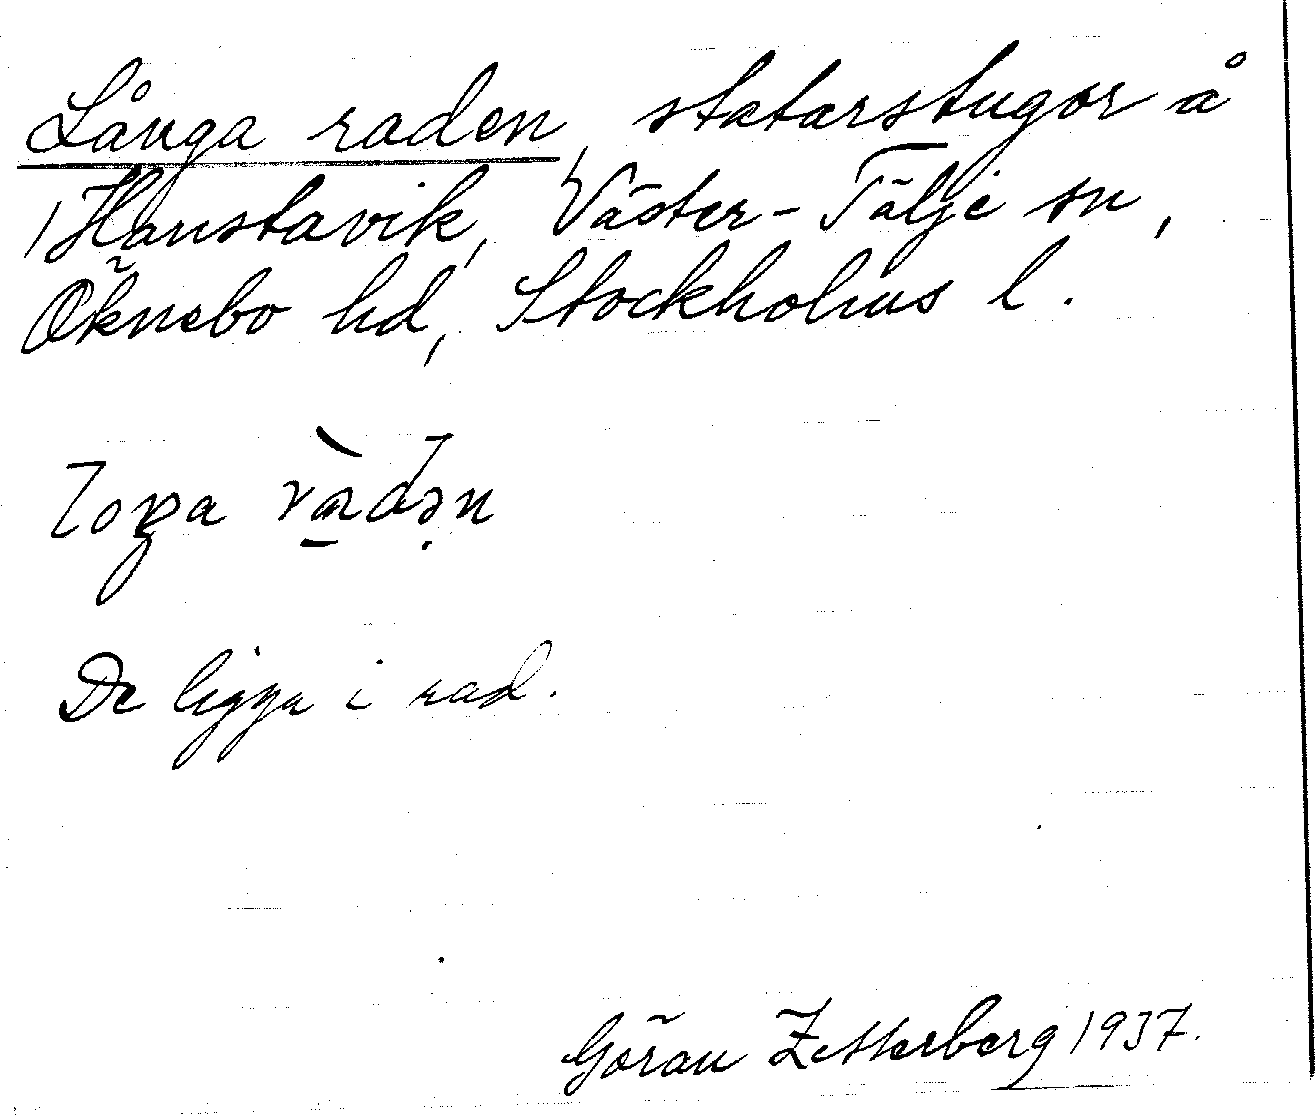 Långa raden, statarstugor å
Hanstavik, Väster-Tälje sn,
Öknebo hd, Stockholms l.
loŋa rὰdən
De ligga i rad.
Göran Zetterberg 1937.